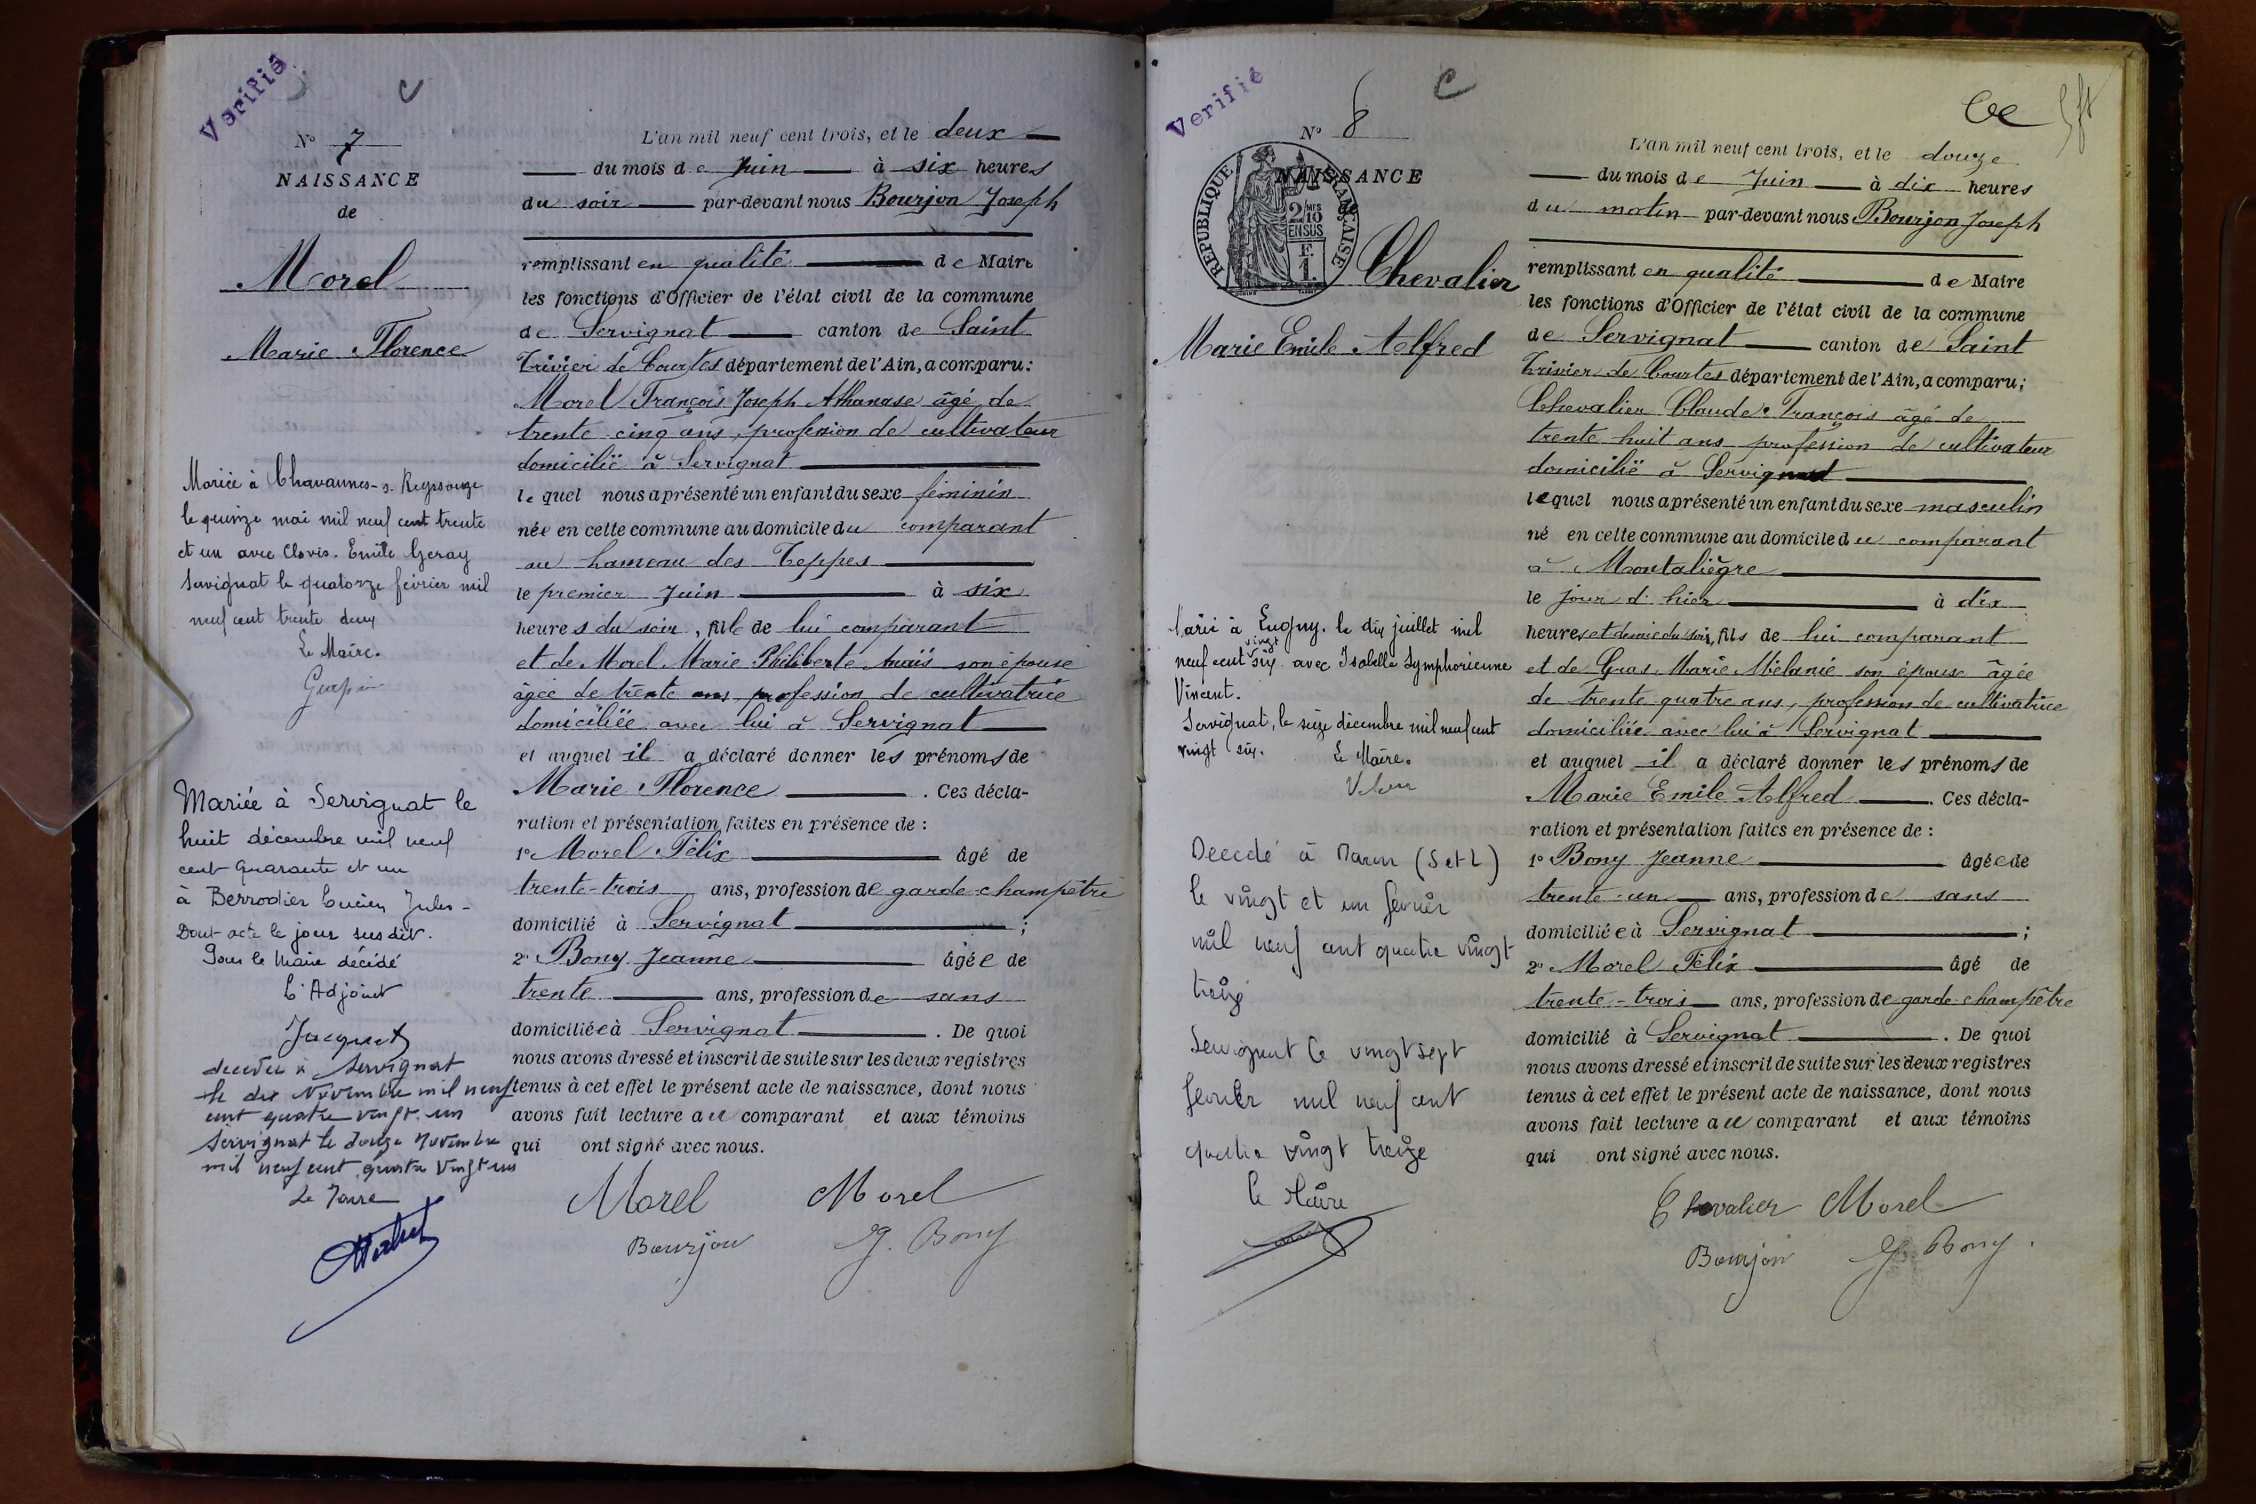 Verifié
C
N° 7
NAISSANCE
de
Morel
Marie Florence
Mariée à Chavannes-s-Reyssouze
le quinze mai mil neuf cent trente
et un avec Clovis. Emile Geray
Servignat le quatorze février mil
neuf cent trente deux
Le Maire.
Mariée à Servignat le
huit décembre mil neuf
cent quarante et un
à Berrodier Lucien Jules -
Dont acte le jour susdit.
Pour le Maire décédé
L'Adjoint
Jacquet
décédée à Servignat
le dix Novembre mil neuf
cent quatre vingt. un
Servignat le douze Novembre
mil neuf cent quatre vingt un
Le Maire
L'an mil neuf cent trois, et le deux
du mois de Juin à six heures
du soir par-devant nous Bourjon Joseph
remplissant en qualité de Maire
les fonctions d'Officier de l'état civil de la commune
de Servignat canton de Saint
Trivier de Courtes département de l'Ain, a comparu:
Morel François Joseph Athanase âgé de
trente cinq ans, profession de cultivateur
domicilié à Servignat
lequel nous a présenté un enfant du sexe féminin
née en cette commune au domicile du comparant
au hameau des Teppes
le premier Juin à six
heures du soir, fille de lui comparant
et de Morel Marie Philiberte Anaïs son épouse
âgée de trente ans, profession de cultivatrice
domiciliée avec lui à Servignat
et auquel il a déclaré donner les prénoms de
Marie Florence . Ces décla-
ration et présentation faites en présence de :
1° Morel Félix âgé de
trente-trois ans, profession de garde-champêtre
domicilié à Servignat ;
2° Bony Jeanne âgée de
trente ans, profession de sans
domiciliée à Servignat . De quoi
nous avons dressé et inscrit de suite sur les deux registres
tenus à cet effet le présent acte de naissance, dont nous
avons fait lecture au comparant et aux témoins
qui ont signé avec nous.
Morel Morel
Bourjon J. Bony
Verifié
C
N° 8
NAISSANCE
de
REPUBLIQUE FRANÇAISE
2/10 MES
EN SUS
F.
1.
Chevalier
Marie Emile Alfred
Marié à Lugny. le dix juillet mil
neuf cent vingt six avec Isabelle Symphorienne
Vincent.
Servignat, le seize décembre mil neuf cent
vingt six.
Le Maire.
Décédé à Macon (S et L)
le vingt et un février
mil neuf cent quatre vingt
treize
Servignat le vingt sept
février mil neuf cent
quatre vingt treize
le Maire
L'an mil neuf cent trois, et le douze
du mois de Juin à dix heures
du matin par-devant nous Bourjon Joseph
remplissant en qualité de Maire
les fonctions d'Officier de l'état civil de la commune
de Servignat canton de Saint
Trivier de Courtes département de l'Ain, a comparu;
Chevalier Claude François âgé de
trente huit ans profession de cultivateur
domicilié à Servignat
lequel nous a présenté un enfant du sexe masculin
né en cette commune au domicile du comparant
à Montaliègre
le jour d'hier à dix
heures et demie du soir, fils de lui comparant
et de Gras Marie Mélanie son épouse âgée
de trente quatre ans, profession de cultivatrice
domiciliée avec lui à Servignat
et auquel il a déclaré donner les prénoms de
Marie Emile Alfred . Ces décla-
ration et présentation faites en présence de :
1° Bony Jeanne âgée de
trente-un ans, profession de sans
domiciliée à Servignat ;
2° Morel Félix âgé de
trente-trois ans, profession de garde-champêtre
domicilié à Servignat . De quoi
nous avons dressé et inscrit de suite sur les deux registres
tenus à cet effet le présent acte de naissance, dont nous
avons fait lecture au comparant et aux témoins
qui ont signé avec nous.
Chevalier Morel
Bourjon J Bony.